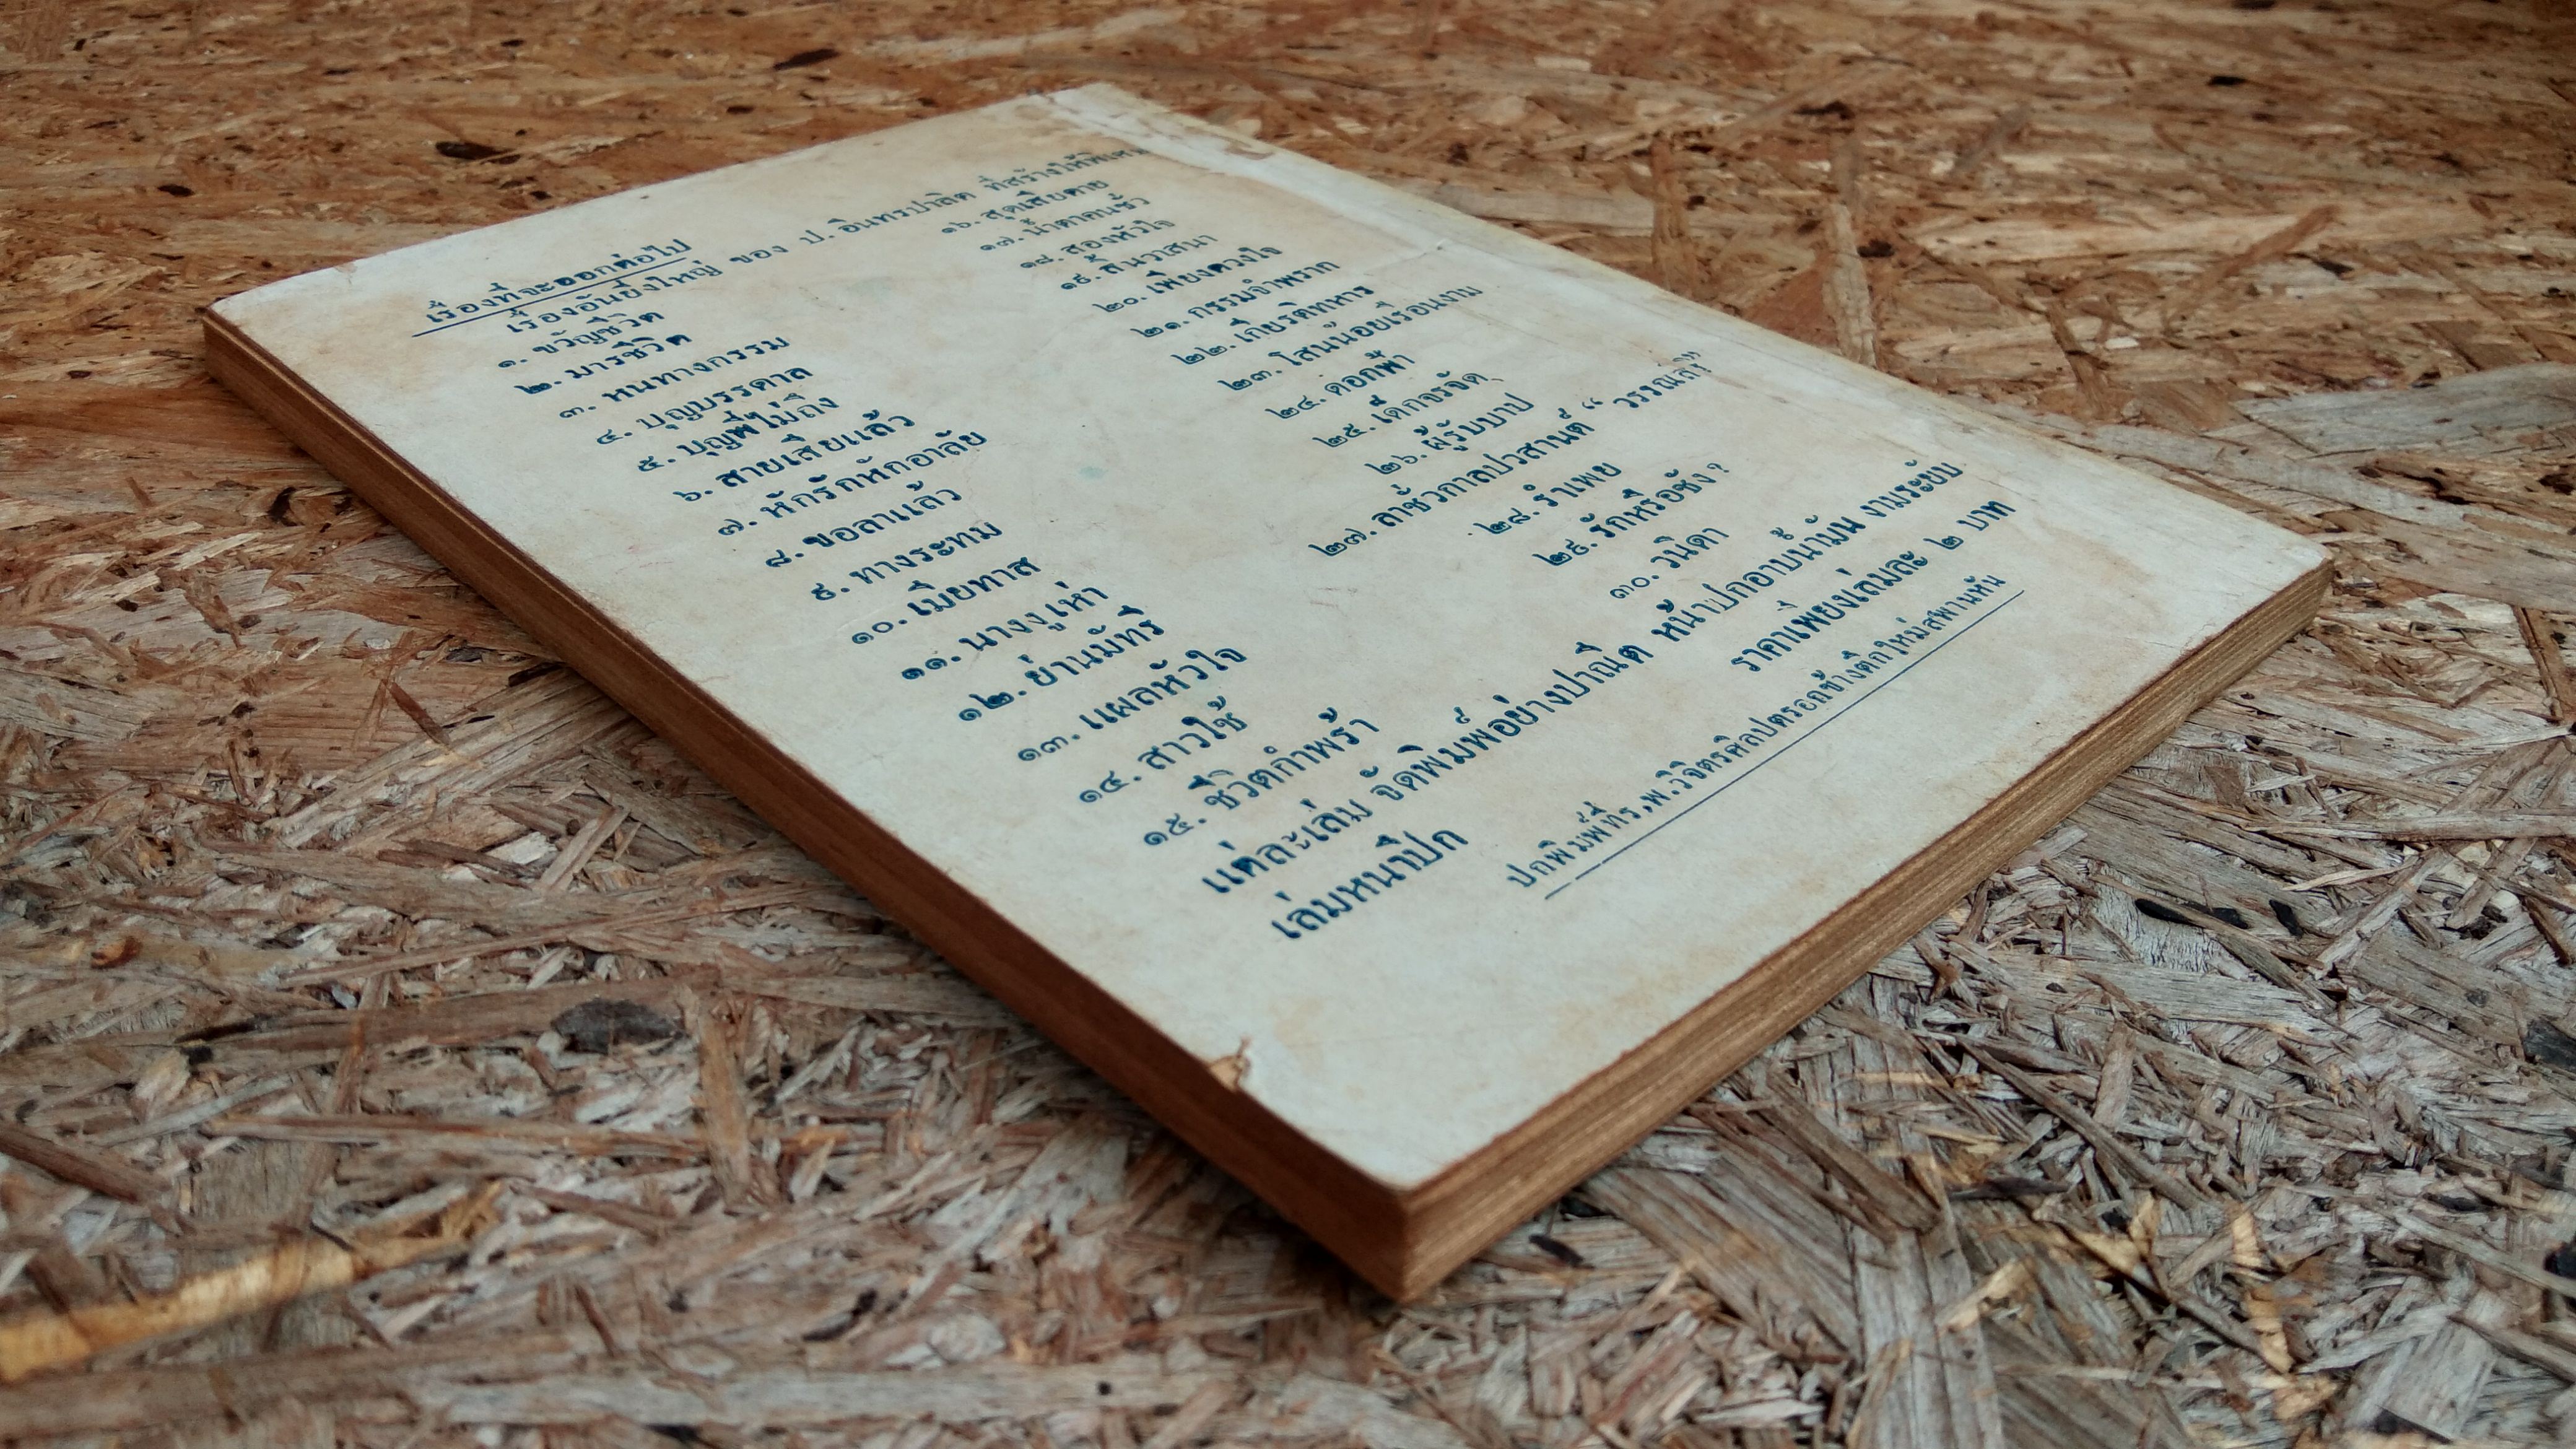 เรื่องที่จะออกต่อไป
เรื่องอันยิ่งใหญ่ ของ ป. อินทรปาลิต ที่สร้างให้พิเศษ
๑. ขวัญชีวิต
๒. มารชีวิต
๓. หนทางกรรม
๔. บุญบรรดาล
๕. บุญพี่ไม่ถึง
๖. สายเสียแล้ว
๗. หักรักหักอาลัย
๘. ขอลาแล้ว
๙. ทางระทม
๑๐. เมียทาส
๑๑. นางงูเห่า
๑๒. ย่านมัทรี
๑๓. แผลหัวใจ
๑๔. สาวใช้
๑๕. ชีวิตกำพร้า
๑๖. สุดเสียดาย
๑๗. น้ำตาคนชั่ว
๑๘. สองหัวใจ
๑๙. สิ้นวาสนา
๒๐. เพียงดวงใจ
๒๑. กรรมจำพราก
๒๒. เกียรติทหาร
๒๓. โสนน้อยเรือนงาม
๒๔. ดอกฟ้า
๒๕. เด็กจรจัด
๒๖. ผู้รับบาป
๒๗. ลาชั่วกาลปวสานต์ “ วรรณสิริ”
๒๘. รำเพย
๒๙. รักหรือชัง?
๓๐. วนิดา
แต่ละเล่ม จัดพิมพ์อย่างปาณีต หน้าปกอาบน้ำมัน งามระยับ
เล่มหนาปึก ราคาเพียงเล่มละ ๒ บาท
ปกพิมพ์ที่ร.พ.วิจิตรศิลปตรอกข้างตึกใหม่สพานหัน